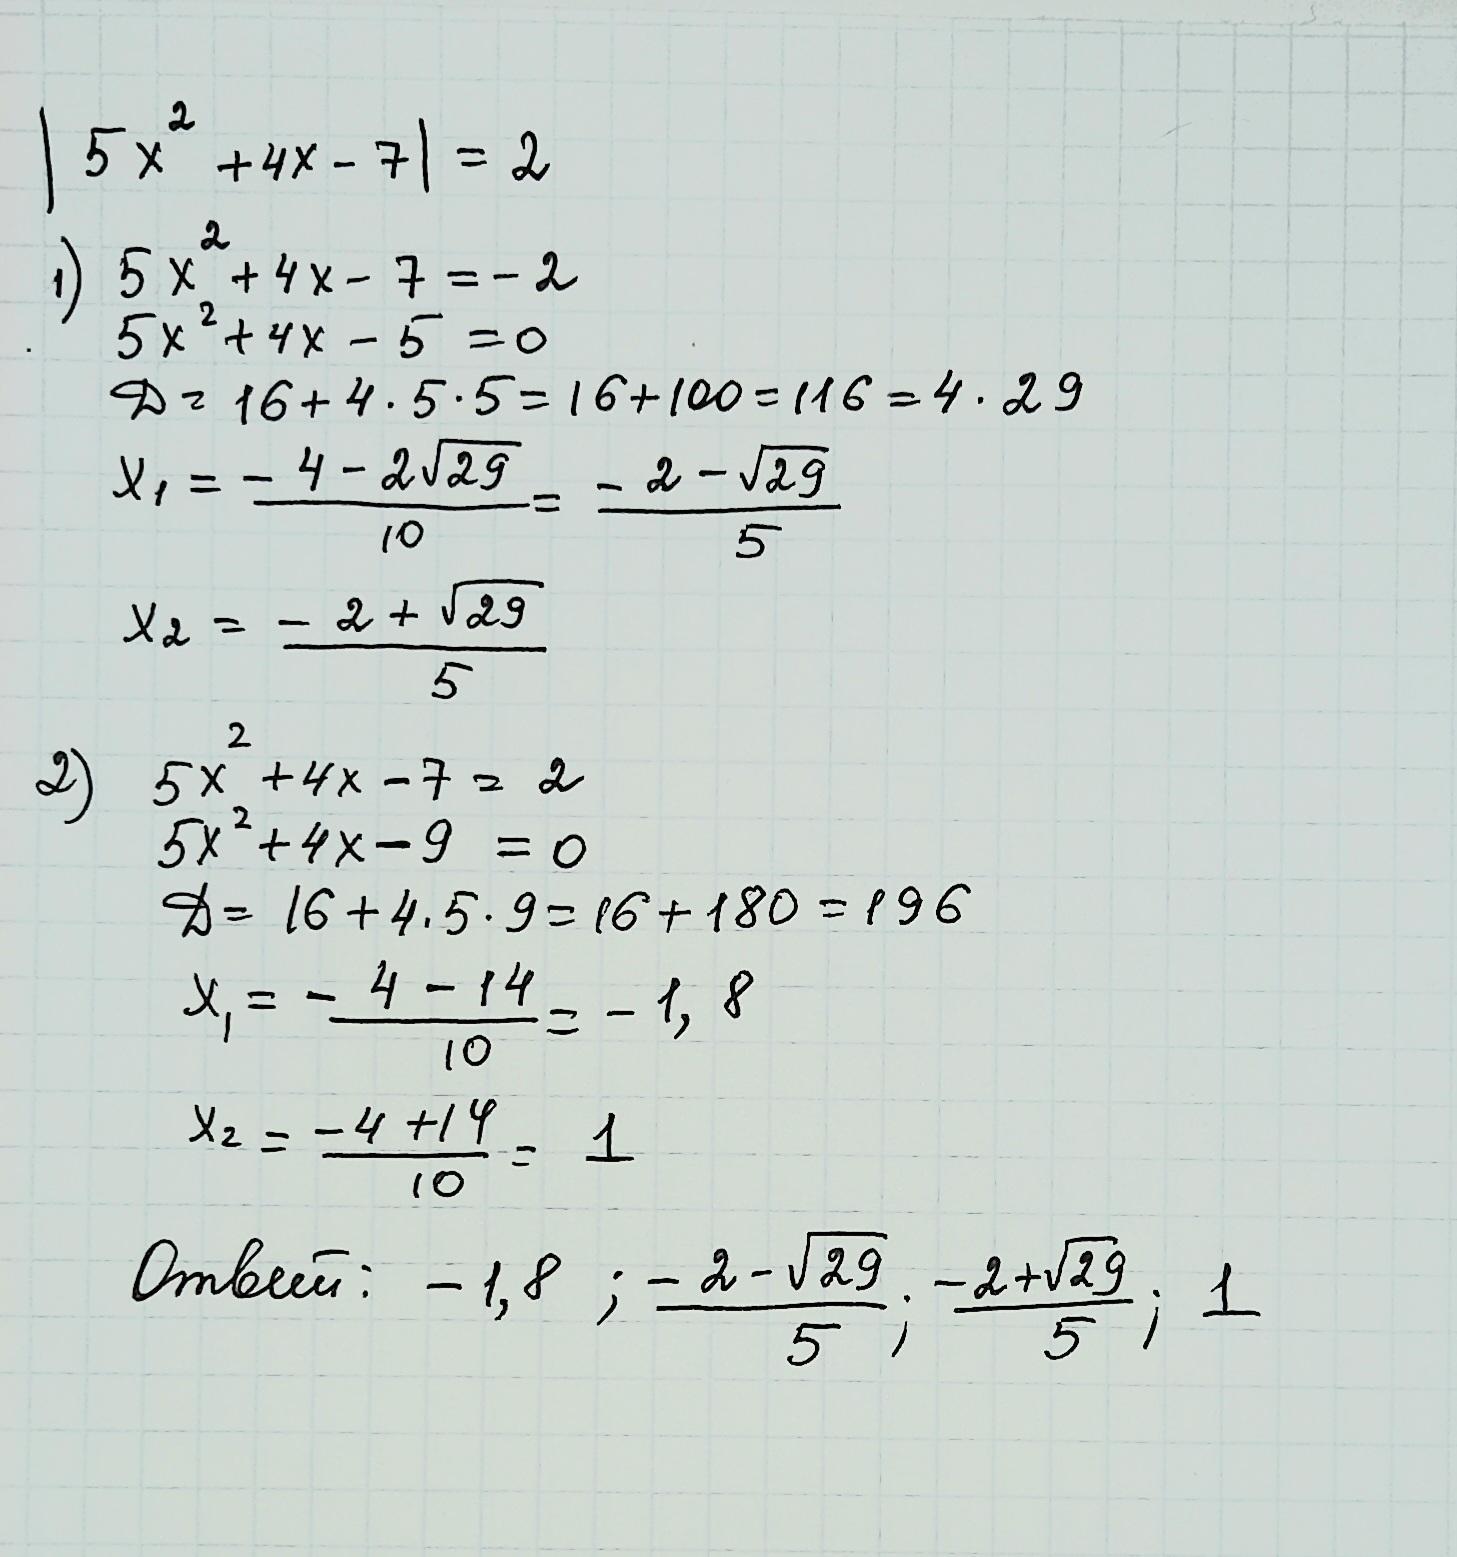 |5x² + 4x - 7| = 2
1) 5x² + 4x - 7 = - 2
5x² + 4x - 5 = 0
Д = 16 + 4 · 5 · 5 = 16 + 100 = 116 = 4 · 29
x₁ = (- 4 - 2√29)/10 = (- 2 - √29)/5
x₂ = (- 2 + √29)/5
2) 5x² + 4x - 7 = 2
5x² + 4x - 9 = 0
Д = 16 + 4 · 5 · 9 = 16 + 180 = 196
x₁ = (- 4 - 14)/10 = - 1,8
x₂ = (- 4 + 14)/10 = 1
Ответ: - 1,8 ; (- 2 - √29)/5 ; (- 2 + √29)/5 ; 1